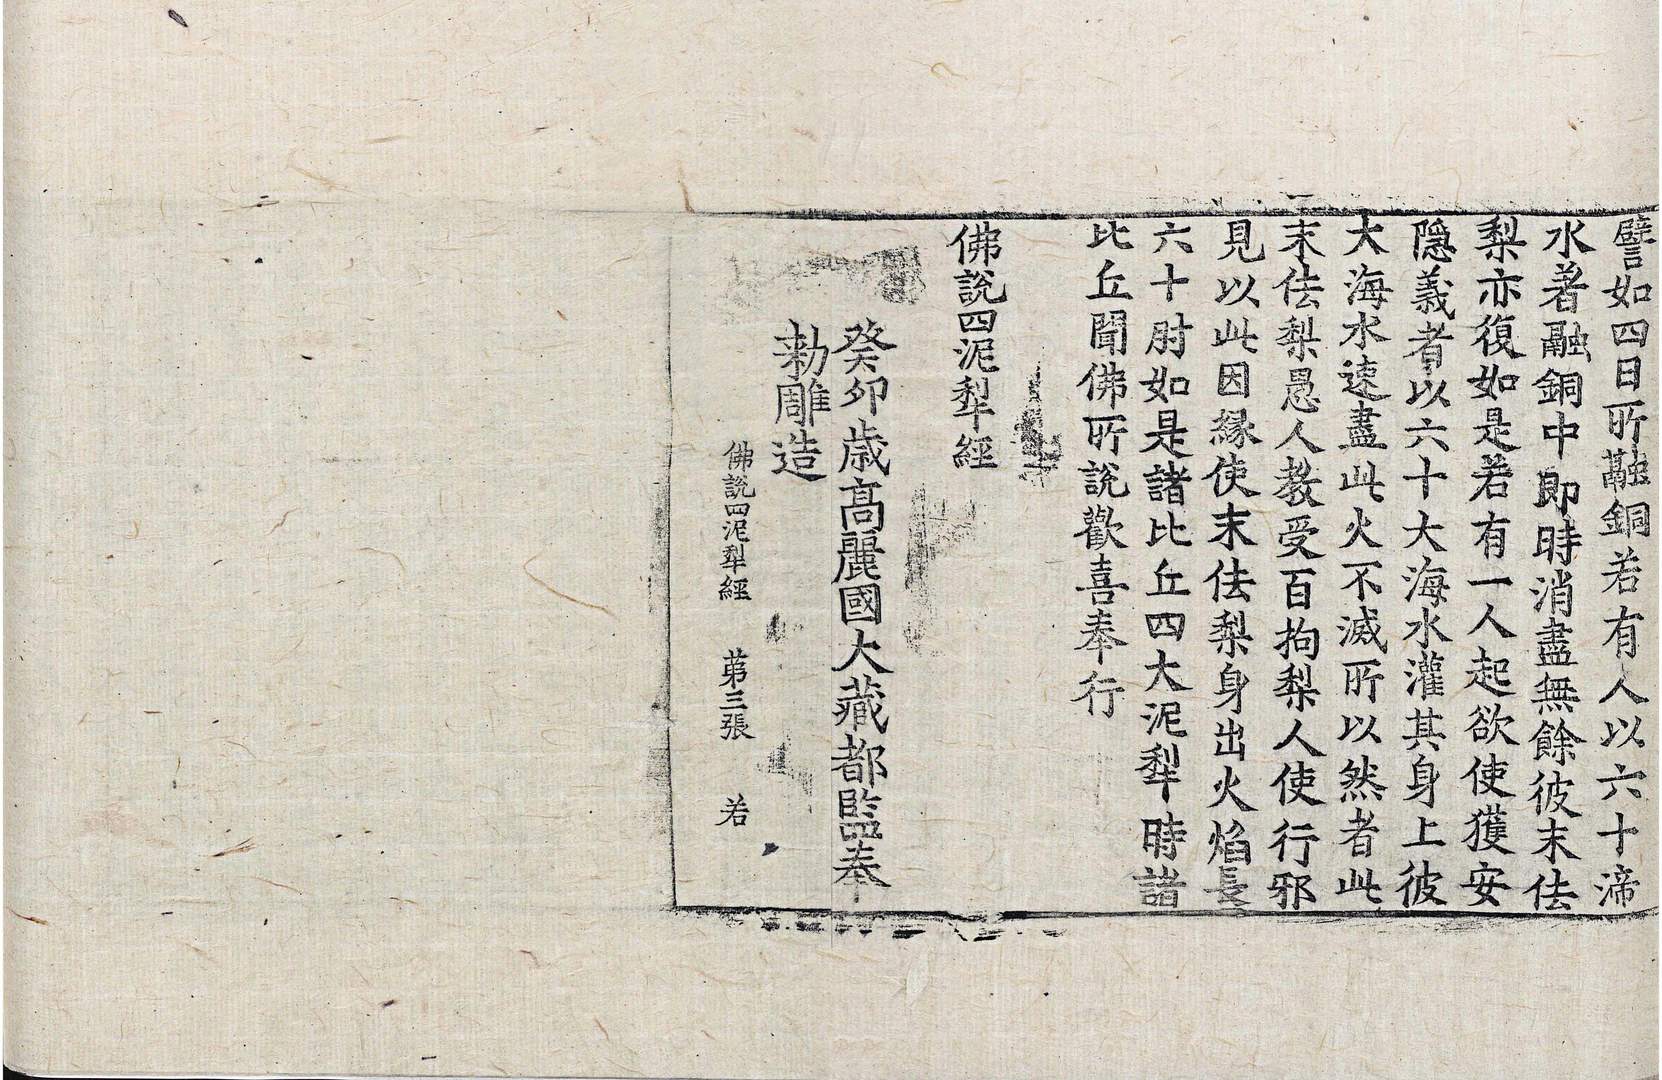 譬如四日所融銅若有人以六十渧
水著融銅中即時消盡無餘彼末佉
梨亦復如是若有一人起欲使獲安
隱義者以六十大海水灌其身上彼
大海水速盡此火不滅所以然者此
末佉梨愚人教受百拘梨人使行邪
見以此因縁使末佉梨身出火焰長
六十肘如是諸比丘四大泥犁時諸
比丘聞佛所說歡喜奉行
佛說四泥犁經
癸卯歲高麗國大藏都監奉
勅雕造
佛說四泥犁經 苐三張 若